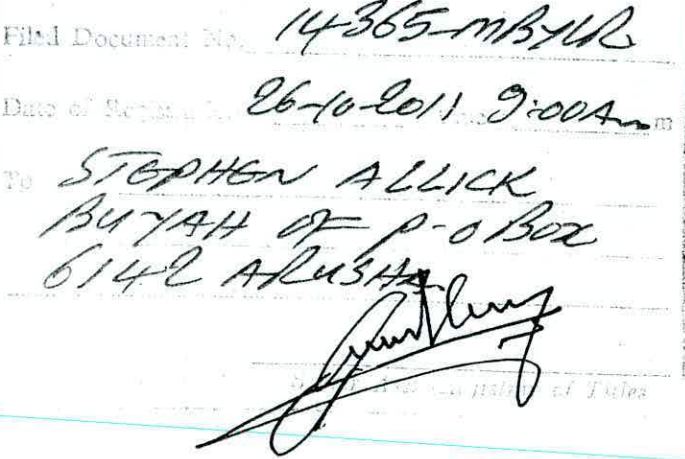 Filed Document No. 14365-MBYLR
Date of 26-10-2011 9:00Am m
To STEPHEN ALLICK
BUYAH OF P-O Box
6142 ARUSHA
of Titles